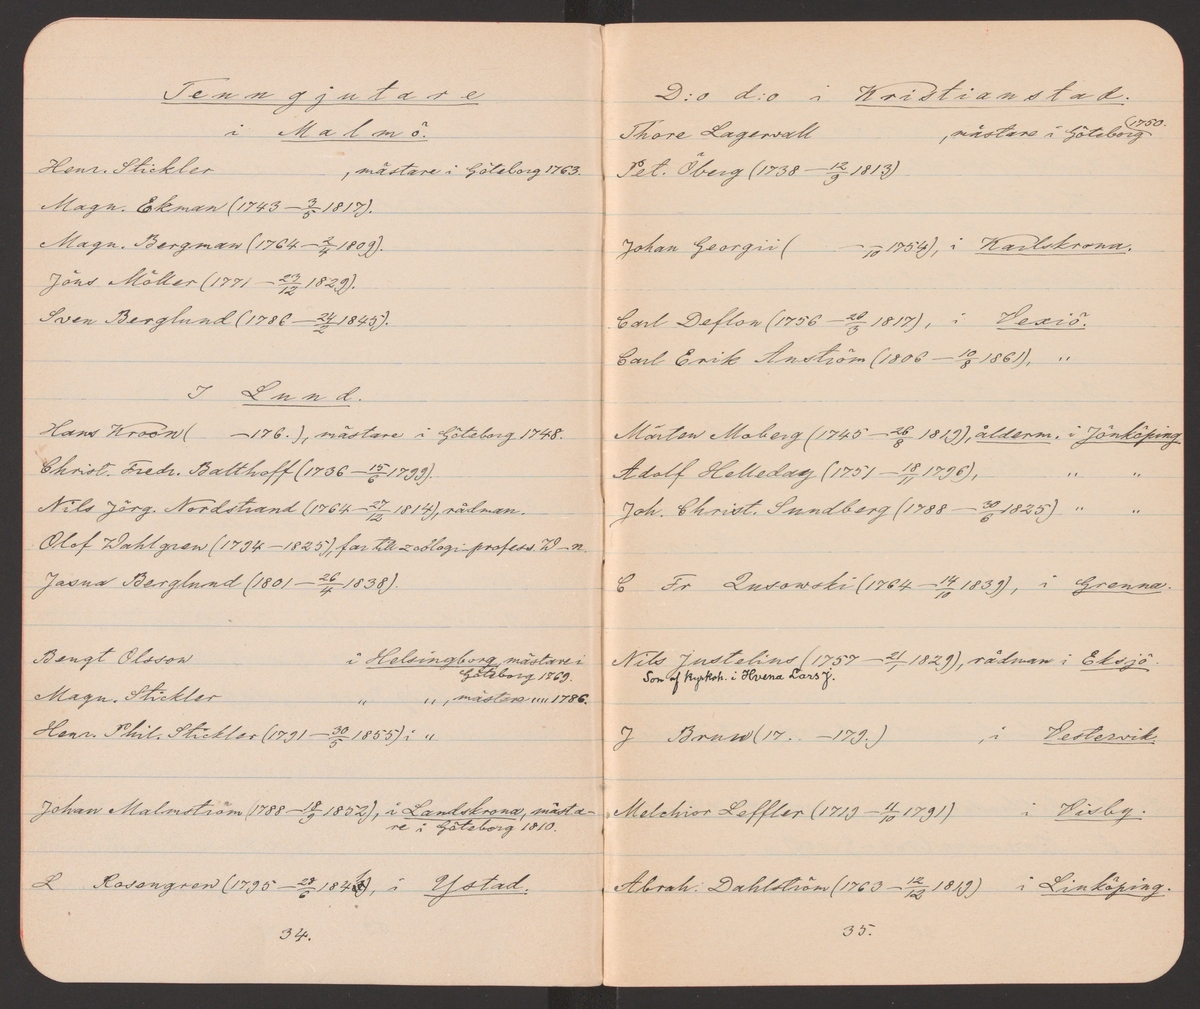 Tenngjutare
i Malmö.
Henr. Stickler , mästare i Göteborg 1763.
Magn. Ekman (1743 – 3/5 1817).
Magn. Bergman (1764 – 2/4 1809).
Jöns Möller (1771 – 23/12 1829).
Sven Berglund (1786 – 24/2 1845).
I Lund.
Hans Kroon ( –176. ), mästare i Göteborg 1748.
Christ. Fredr. Balthoff (1736 – 15/6 1799).
Nils Jörg. Nordstrand (1764 – 27/12 1814), rådman.
Olof Wahlgren (1794 – 1825), far till zoologi-profess. W–n.
Jasua Berglund (1801 – 26/4 1838).
Bengt Olsson i Helsingborg, mästare i
Göteborg 1769.
Magn. Stickler " ", mästare "" 1786.
Henr. Phil. Stickler (1791 – 30/5 1855) i "
Johan Malmström (1788 – 18/9 1852), i Landskrona, mästa-
re i Göteborg 1810.
L Rosengren (1795 – 28/6 184), i Ystad.
34.
D:o d:o i Kristianstad.
Thore Lagerwall , mästare i Göteborg (1750.
Pet. Öberg (1738 – 12/9 1813)
Johan Georgii ( – /10 1754), i Karlskrona.
Carl Deflon (1756 – 20/3 1817), i Vexiö.
Carl Erik Anström (1806 – 10/8 1861), "
Mårten Moberg (1745 – 26/8 1819), ålderm. i Jönköping
Adolf Helleday (1751 – 18/11 1796), " "
Joh. Christ. Sundberg (1788 – 30/6 1825) " "
C Fr Qusowski (1764 – 14/10 1839), i Grenna.
Nils Justelius (1757 – 21/1 1829), rådman i Eksjö.
Son af kyrkoh. i Hvena Lars J.
J Brun (17. – 179.) , i Vestervik.
Melchior Leffler (1719 – 4/10 1791) i Visby.
Abrah. Dahlström (1763 – 12/12 1819) i Linköping.
35.